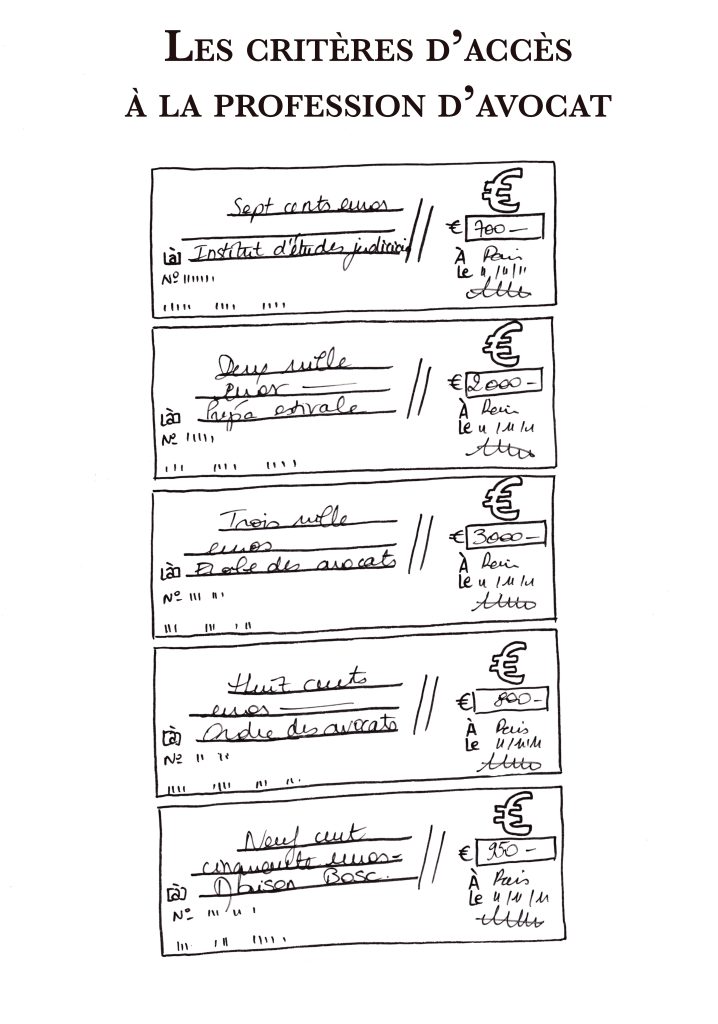 LES CRITÈRES D'ACCÈS
À LA PROFESSION D'AVOCAT
€
Sept cents euros
€ 700-
[à] Institut d'études judiciaires
À Paris
Le 11/11/11
Nº
€
Deux mille
euros
€ 2000-
[à] Prépa estivale
À Paris
Le 11/11/11
Nº
€
Trois mille
euros
€ 3000-
[à] Ecole des avocats
À Paris
Le 11/11/11
Nº
€
Huit cents
euros
€ 800-
[à] Ordre des avocats
À Paris
Le 11/11/11
Nº
€
Neuf cent
cinquante euros-
€ 950-
[à] Maison Bosc.
À Paris
Le 11/11/11
Nº